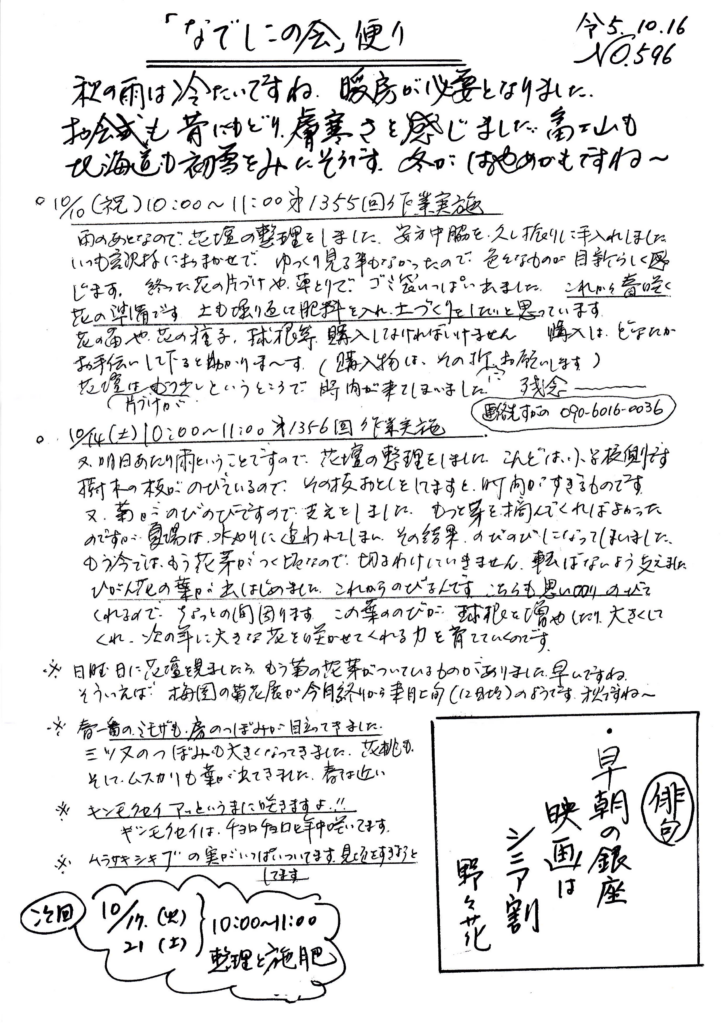 「なでしこの会」便り
令5.10.16
NO.596
秋の雨は冷たいですね、暖房が必要となりました。
お会式も昔にもどり、膚寒さを感じました。富士山も
北海道も初雪をみたそうです。冬が はやめかもですね〜
○ 10/10(祝)10:00〜11:00 第1355回作業実施
雨のあとなので、花壇の整理をしました。 中脇を、久し振りに手入れしました
いつも におまかせで、ゆっくり見る事もなかったので、色々なものが目新らしく感
じます。終った花の片づけや、草とりで、ゴミ袋いっぱい出ました。これから春に咲く
花の準備です 土も堀り返して肥料を入れ、土づくりをしたいと思っています
花の苗や、花の種子、球根等、購入しなければいけません 購入は、どなたか
お手伝いして下ると助かりま〜す。(購入物は、その折、お願いします)
花壇はもう少しというところで 時間が来てしまいました 残念
(片づけが)
連絡先すがの 090-6016-0036
○ 10/14(土)10:00〜11:00 第1356回作業実施
又、明日あたり雨ということですので、花壇の整理をしました。こんどは、小学校側です
樹木の枝がのびているので、その枝おとしをしてますと、時間がすぎるものです
又、菊がのびのびですので支えをしました。もっと芽を摘んでくればよかった
のですが 夏場は、水やりに追われてしまい、その結果、のびのびになってしまいました
もう今では、もう花芽がつく頃なので、切るわけにいきません、転ばないよう支えました
ひがん花の葉が出はじめました。これからのびるんです こちらも思い切り のびて
くれるので、ちょっとの間困ります この葉ののびが、球根を増やしたり、大きくして
くれ、次の年に大きな花を咲かせてくれる力を育てていくのです
※ 日曜日に花壇を見ましたら、もう菊の花芽がついているものがありました。早いですね。
そういえば 梅園の菊花展が今月終りから来月上旬( )のようです。秋ですね〜
※ 春一番の、ミモザも、房のつぼみが目立ってきました。
ミツマタのつぼみも大きくなってきました。花桃も、
そして、ムスカリも葉が出てきました、春は近い
※ キンモクセイ アッというまに咲きますよ!!
ギンモクセイは、チョロチョロと年中咲いてます。
※ ムラサキシキブの実がいっぱいついてます。見頃をすぎようと
してます
次回
10/17.(火)
21(土)
10:00〜11:00
整理と施肥
俳句
・早朝の銀座
映画は
シニア割
野々花